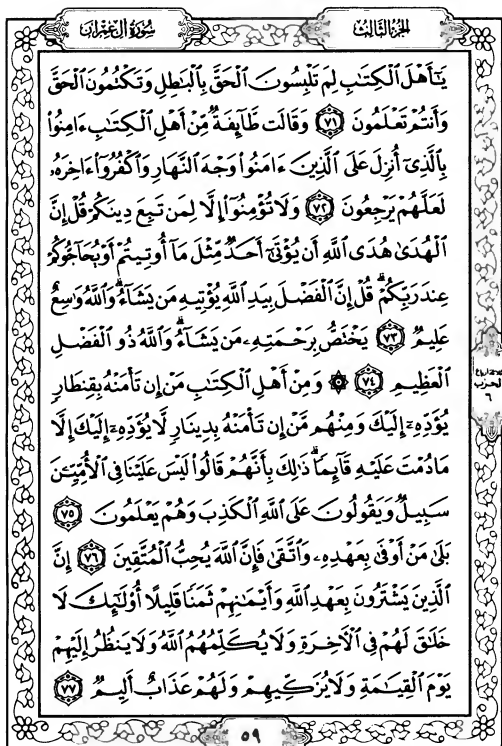 سورة آل عمران
الجزء الثالث
يَٰٓأَهۡلَ ٱلۡكِتَٰبِ لِمَ تَلۡبِسُونَ ٱلۡحَقَّ بِٱلۡبَٰطِلِ وَتَكۡتُمُونَ ٱلۡحَقَّ
وَأَنتُمۡ تَعۡلَمُونَ ٧١ وَقَالَت طَّآئِفَةٞ مِّنۡ أَهۡلِ ٱلۡكِتَٰبِ ءَامِنُواْ
بِٱلَّذِيٓ أُنزِلَ عَلَى ٱلَّذِينَ ءَامَنُواْ وَجۡهَ ٱلنَّهَارِ وَٱكۡفُرُوٓاْ ءَاخِرَهُۥ
لَعَلَّهُمۡ يَرۡجِعُونَ ٧٢ وَلَا تُؤۡمِنُوٓاْ إِلَّا لِمَن تَبِعَ دِينَكُمۡ قُلۡ إِنَّ
ٱلۡهُدَىٰ هُدَى ٱللَّهِ أَن يُؤۡتَىٰٓ أَحَدٞ مِّثۡلَ مَآ أُوتِيتُمۡ أَوۡ يُحَآجُّوكُمۡ
عِندَ رَبِّكُمۡۗ قُلۡ إِنَّ ٱلۡفَضۡلَ بِيَدِ ٱللَّهِ يُؤۡتِيهِ مَن يَشَآءُۗ وَٱللَّهُ وَٰسِعٌ
عَلِيمٞ ٧٣ يَخۡتَصُّ بِرَحۡمَتِهِۦ مَن يَشَآءُۗ وَٱللَّهُ ذُو ٱلۡفَضۡلِ
ٱلۡعَظِيمِ ٧٤ ۞ وَمِنۡ أَهۡلِ ٱلۡكِتَٰبِ مَنۡ إِن تَأۡمَنۡهُ بِقِنطَارٖ
يُؤَدِّهِۦٓ إِلَيۡكَ وَمِنۡهُم مَّنۡ إِن تَأۡمَنۡهُ بِدِينَارٖ لَّا يُؤَدِّهِۦٓ إِلَيۡكَ إِلَّا
مَا دُمۡتَ عَلَيۡهِ قَآئِمٗاۗ ذَٰلِكَ بِأَنَّهُمۡ قَالُواْ لَيۡسَ عَلَيۡنَا فِي ٱلۡأُمِّيِّـۧنَ
سَبِيلٞ وَيَقُولُونَ عَلَى ٱللَّهِ ٱلۡكَذِبَ وَهُمۡ يَعۡلَمُونَ ٧٥
بَلَىٰ مَنۡ أَوۡفَىٰ بِعَهۡدِهِۦ وَٱتَّقَىٰ فَإِنَّ ٱللَّهَ يُحِبُّ ٱلۡمُتَّقِينَ ٧٦ إِنَّ
ٱلَّذِينَ يَشۡتَرُونَ بِعَهۡدِ ٱللَّهِ وَأَيۡمَٰنِهِمۡ ثَمَنٗا قَلِيلًا أُوْلَٰٓئِكَ لَا
خَلَٰقَ لَهُمۡ فِي ٱلۡأٓخِرَةِ وَلَا يُكَلِّمُهُمُ ٱللَّهُ وَلَا يَنظُرُ إِلَيۡهِمۡ
يَوۡمَ ٱلۡقِيَٰمَةِ وَلَا يُزَكِّيهِمۡ وَلَهُمۡ عَذَابٌ أَلِيمٞ ٧٧
الحزب
٦
٥٩